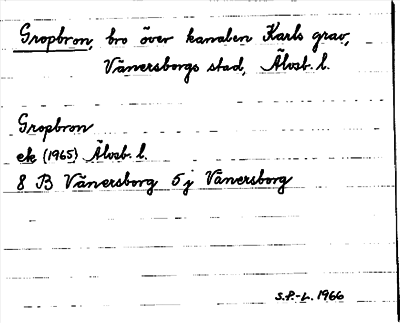 Gropbron, bro över kanalen Karls grav,
Vänersborgs stad, Älvsb. l.
Gropbron
ek (1965) Älvsb. l.
8 B Vänersborg 5 j Vänersborg
S.P.-L. 1966